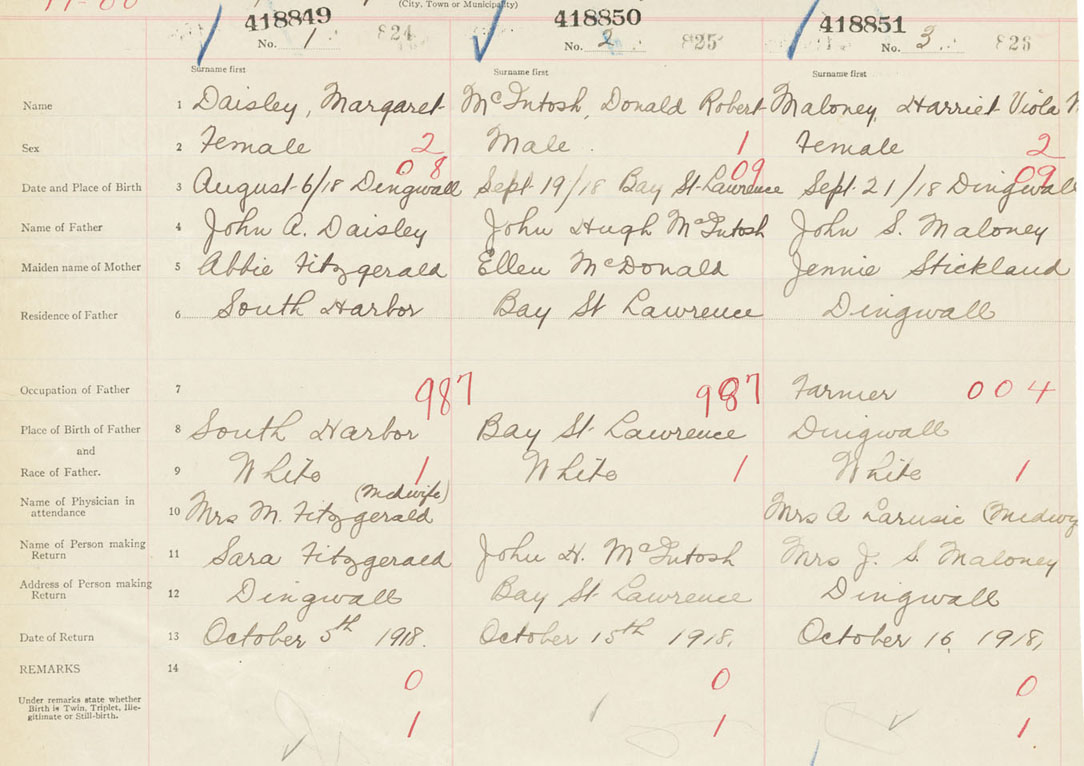 (City, Town or Municipality)
418849 418850 418851
No. 1 824 No. 2 825 No. 3 826
Surname first Surname first Surname first
Name 1 Daisley, Margaret McIntosh, Donald Robert Maloney, Harriet Viola
Sex 2 Female 2 Male. 1 Female 2
08 09 09
Date and Place of Birth 3 August 6/18 Dingwall Sept 19/18 Bay St. Lawrence Sept 21/18 Dingwall
Name of Father 4 John A. Daisley John Hugh McIntosh John S. Maloney
Maiden name of Mother 5 Abbie Fitzgerald Ellen McDonald Jennie Stickland
Residence of Father 6 South Harbor Bay St Lawrence Dingwall
Occupation of Father 7 987 987 Farmer 004
Place of Birth of Father 8 South Harbor Bay St. Lawrence Dingwall
and
Race of Father. 9 White 1 White 1 White 1
(Midwife)
Name of Physician in
attendance 10 Mrs M. Fitzgerald Mrs A Larusic (Midwif
Name of Person making
Return 11 Sara Fitzgerald John H. McIntosh Mrs J. S. Maloney
Address of Person making
Return 12 Dingwall Bay St Lawrence Dingwall
Date of Return 13 October 5th 1918. October 15th 1918. October 16, 1918,
REMARKS 14
0 0 0
Under remarks state whether
Birth is Twin, Triplet, Ille-
gitimate or Still-birth.
1 1 1